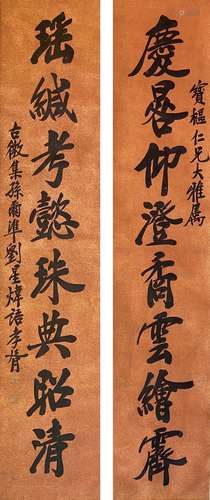 慶晷仰澄喬雲繪霽
寶樞仁兄大雅属
瑶緘考懿珠典昭清
古徵集孫爾準劉星煒語李胥